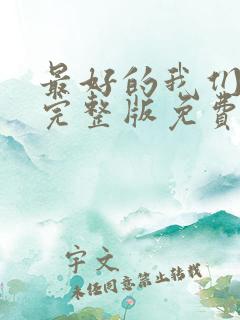 最好的我们
完整版免费
宇文
未经同意禁止转载